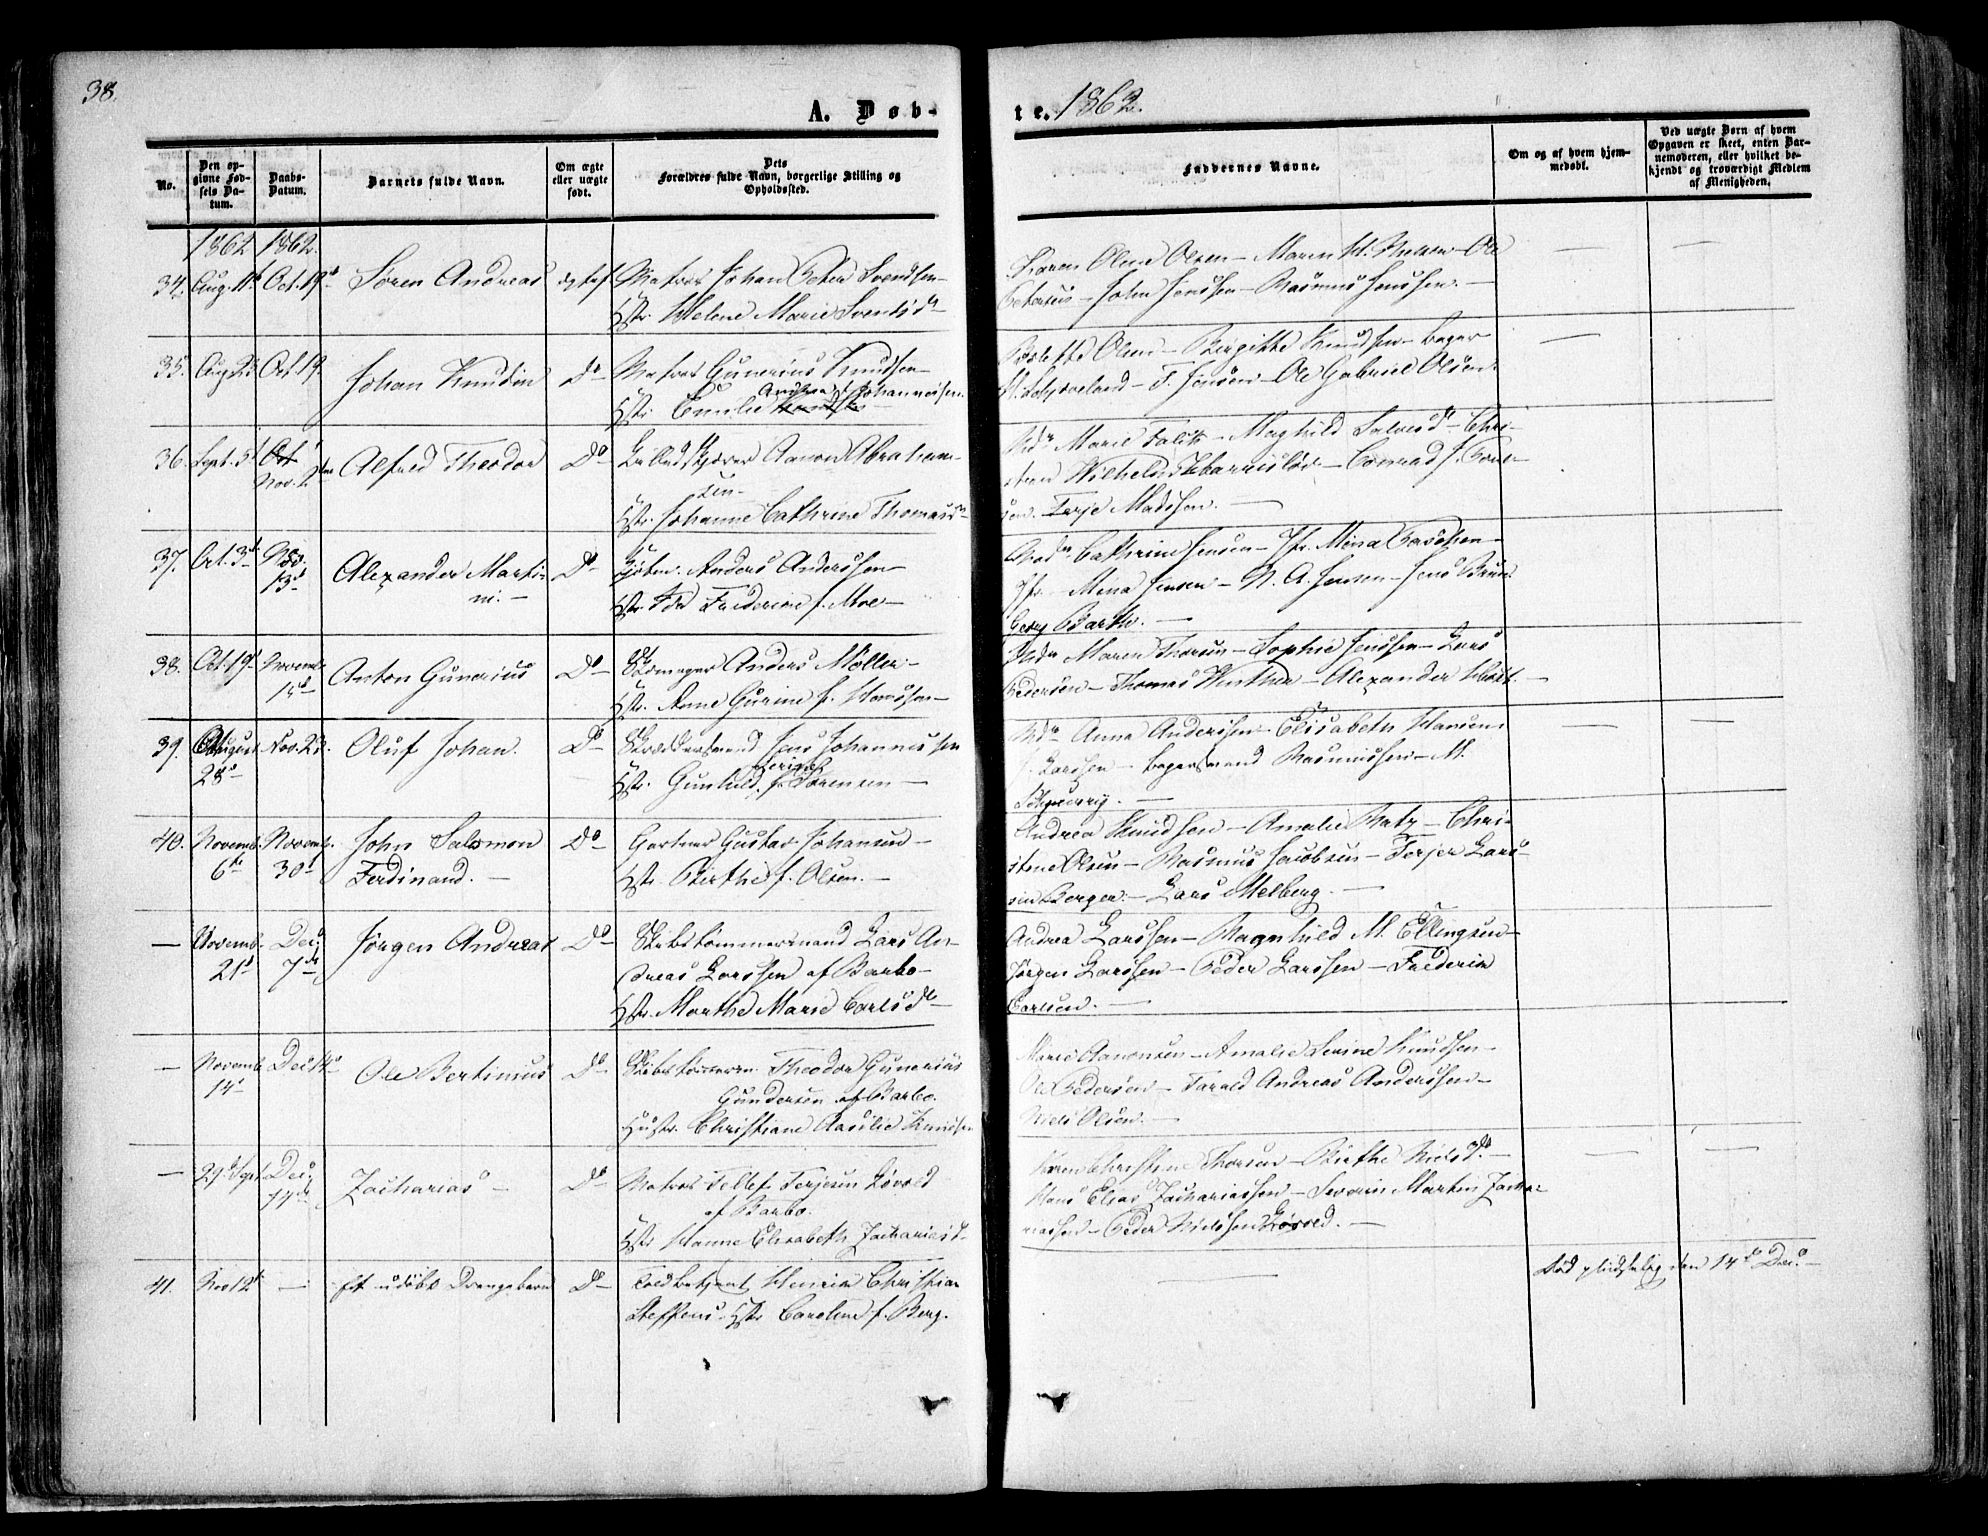 38.
A. Døb-
te. 1862.
No.
Den op-
givne Fød-
sels Da-
tum.
Daabs-
Datum.
Barnets fulde Navn.
Om ægte
eller uægte
født.
Dets
Forældres fulde Navn, borgerlige Stilling og
Opholdssted.
Faddernes Navne.
Om og af hvem hjem-
medøbt.
Ved uægte Børn af hvem
Opgaven er skeet, enten Bar-
nemoderen, eller hvilket be-
kjendt og troværdigt Medlem
af Menigheden.
1862 1862.
34. Aug. 11t Oct. 19d Søren Andreas ægtef. Matros Johan Peter Svendsen
Hstr. Helene Marie Svendsd.
Karen Oline Olsen – Maren M. Nielsen – Ole
Petersen – John Jenssen – Rasmus Jenssen. –
35. Aug 23 Oct. 19. Johan Knudin Do Matros Gunerius Knudsen
Andrea f. Johannesen
Hstr. Emilie
Olsen – Birgitte Knudsen – Bager
– F. Jensen – Ole Gabriel Olsen.
36. Sept. 5t Oct
Nov. 2den Alfred Theodor Do Aanon Abraham-
sen
Hstr. Johanne Cathrine Thomasd.
Md. Marie Falck – Maghild Salvesd. – Chri-
Wilhelm – Conrad J.
sen. Terje Madssen. –
37. Oct. 3d Nov.
13d Alexander Marti-
ni. – Do Anders Anderssen
Hstr. Ida Frederine f. Moe –
Mad. Cathrine Jensen – Jfr. Mina
Jfr. Mina Jensen – N. A. Jensen – Jens Bruun
Georg Barth. –
38. Oct. 19d Novemb.
15d Anton Gunerius Do Skomager Anders Møller –
Hstr. Anne Gurine f. Hanssen –
Md. Maren Thorsen – Sophie Jenssen – Lars
Pedersen – Thomas Winther – Alexander Holst. –
39. August
28d Nov. 23. Oluf Johan. Do Skræddersvend Jens Johannessen
Hstr. Gunhild f. Sørensen –
Md. Anna Anderssen – Elisabeth Hansen
Larssen – Bagersvend Rasmussen – M.
40. Novemb.
6te Novemb.
30d John Salomon
Ferdinand. – Do Gartner Gustav Johansen –
Hstr. Birthe f. Olsen. –
Andrea Knudsen – Amalie Ratz – Chri-
stine Olsen – Rasmus Jacobsen – Terjer Lars-
sen Berger. – Lars Melberg. –
– Novemb.
21d Dec.
7de Jørgen Andreas Do Skibstømmermand Lars An-
dreas Larssen af Barbo –
Hstr. Marthe Marie Carlsd. –
Andrea Larssen – Ragnhild M. Ellingsen –
Jørgen Larssen – Peder Larssen – Frederik
Carlsen. –
– Novemb.
14d Dec 14d Ole Bertinius Do Skibstømmerm. Theodor Gunerius
Gundersen af Barbo.
Hustr. Christiane Aasilie Knudsen
Marie Aanonsen – Amalie Severine Knudsen –
Ole Pedersen – Tarald Andreas Anderssen –
Niels Olsen. –
– 29d Sept. Dec.
14de Zacharias – Do Matros Tellef Terjesen Løvold
af Barbo.
Hstr. Hanne Elisabeth Zachariasd.
Karen Christine Thorsen – Birthe Nielsd. –
Hans Elias Zachariassen – Severin Martin Zacha-
riassen – Peder Nielssen Løvold. –
41. Nov 12t – Et udøbt Drengebarn Do Toldbetjent Henrik Christian
Steffens. Hstr. Caroline f. Berg.
Død pludselig den 14de Dec. –